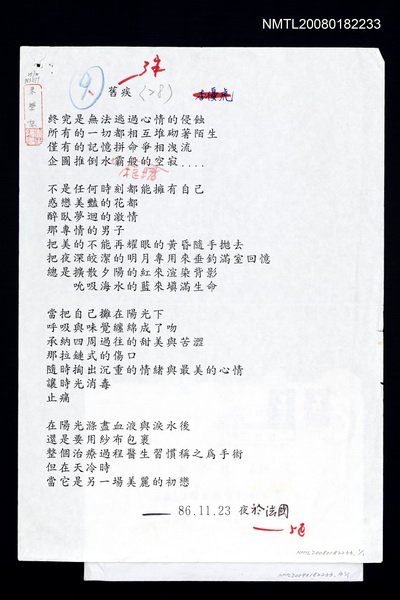 NMTL20080182233
9、
舊痰 (28)
李優虎
終究是無法逃過心情的侵蝕
所有的一切都相互堆砌著陌生
僅有的記憶拼命爭相洩流
企圖推倒水霸般的空寂....
不是任何時刻都能擁有自己
惑戀美豔的花都
醉臥夢迴的激情
那專情的男子
把美的不能再耀眼的黃昏隨手拋去
把夜深皎潔的明月專用來垂釣滿室回憶
總是擴散夕陽的紅來渲染背影
吮吸海水的藍來填滿生命
當把自己攤在陽光下
呼吸與味覺纏綿成了吻
承納四周過往的甜美與苦澀
那拉鏈式的傷口
隨時掏出沉重的情緒與最美的心情
讓時光消毒
止痛
在陽光滌盡血液與淚水後
還是要用紗布包裹
整個治療過程醫生習慣稱之為手術
但在天冷時
當它是另一場美麗的初戀
—— 86.11.23 夜於法國
NMTL20080182233
NMTL20080182233